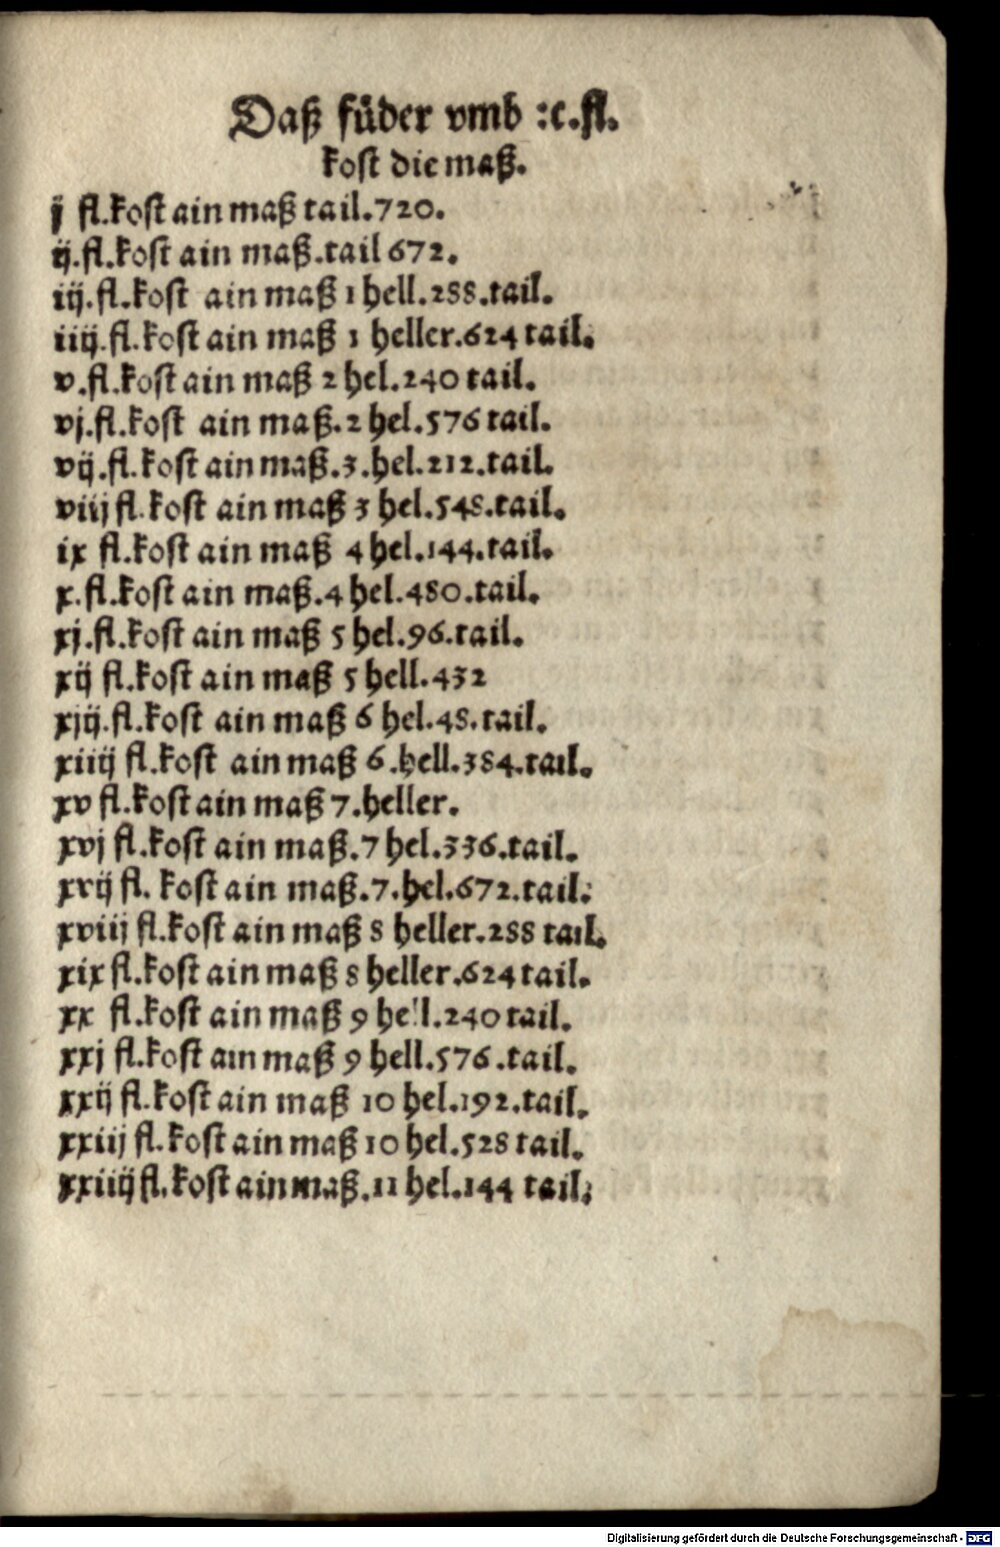 Daß füder vmb :c.fl.
kost die maß.
j fl.kost ain maß tail.720.
ij.fl.kost ain maß.tail 672.
iij.fl.kost ain maß 1 hell.288.tail.
iiij.fl.kost ain maß 1 heller.624 tail.
v.fl.kost ain maß 2 hel.240 tail.
vj.fl.kost ain maß.2 hel.576 tail.
vij.fl.kost ain maß.3.hel.212.tail.
viij fl.kost ain maß 3 hel.548.tail.
ix fl.kost ain maß 4 hel.144.tail.
x.fl.kost ain maß.4 hel.480.tail.
xj.fl.kost ain maß 5 hel.96.tail.
xij fl.kost ain maß 5 hell.432
xjij.fl.kost ain maß 6 hel.48.tail.
xiiij fl.kost ain maß 6.hell.384.tail.
xv fl.kost ain maß 7.heller.
xvj fl.kost ain maß.7 hel.336.tail.
xvij fl. kost ain maß.7.hel.672.tail.
xviij fl.kost ain maß 8 heller.288 tail.
xix fl.kost ain maß 8 heller.624 tail.
xx fl.kost ain maß 9 hell.240 tail.
xxj fl.kost ain maß 9 hell.576.tail.
xxij fl.kost ain maß 10 hel.192.tail.
xxiij fl.kost ain maß 10 hel.528 tail.
xxiiij fl.kost ain maß.11 hel.144 tail.
Digitalisierung gefördert durch die Deutsche Forschungsgemeinschaft - DFG